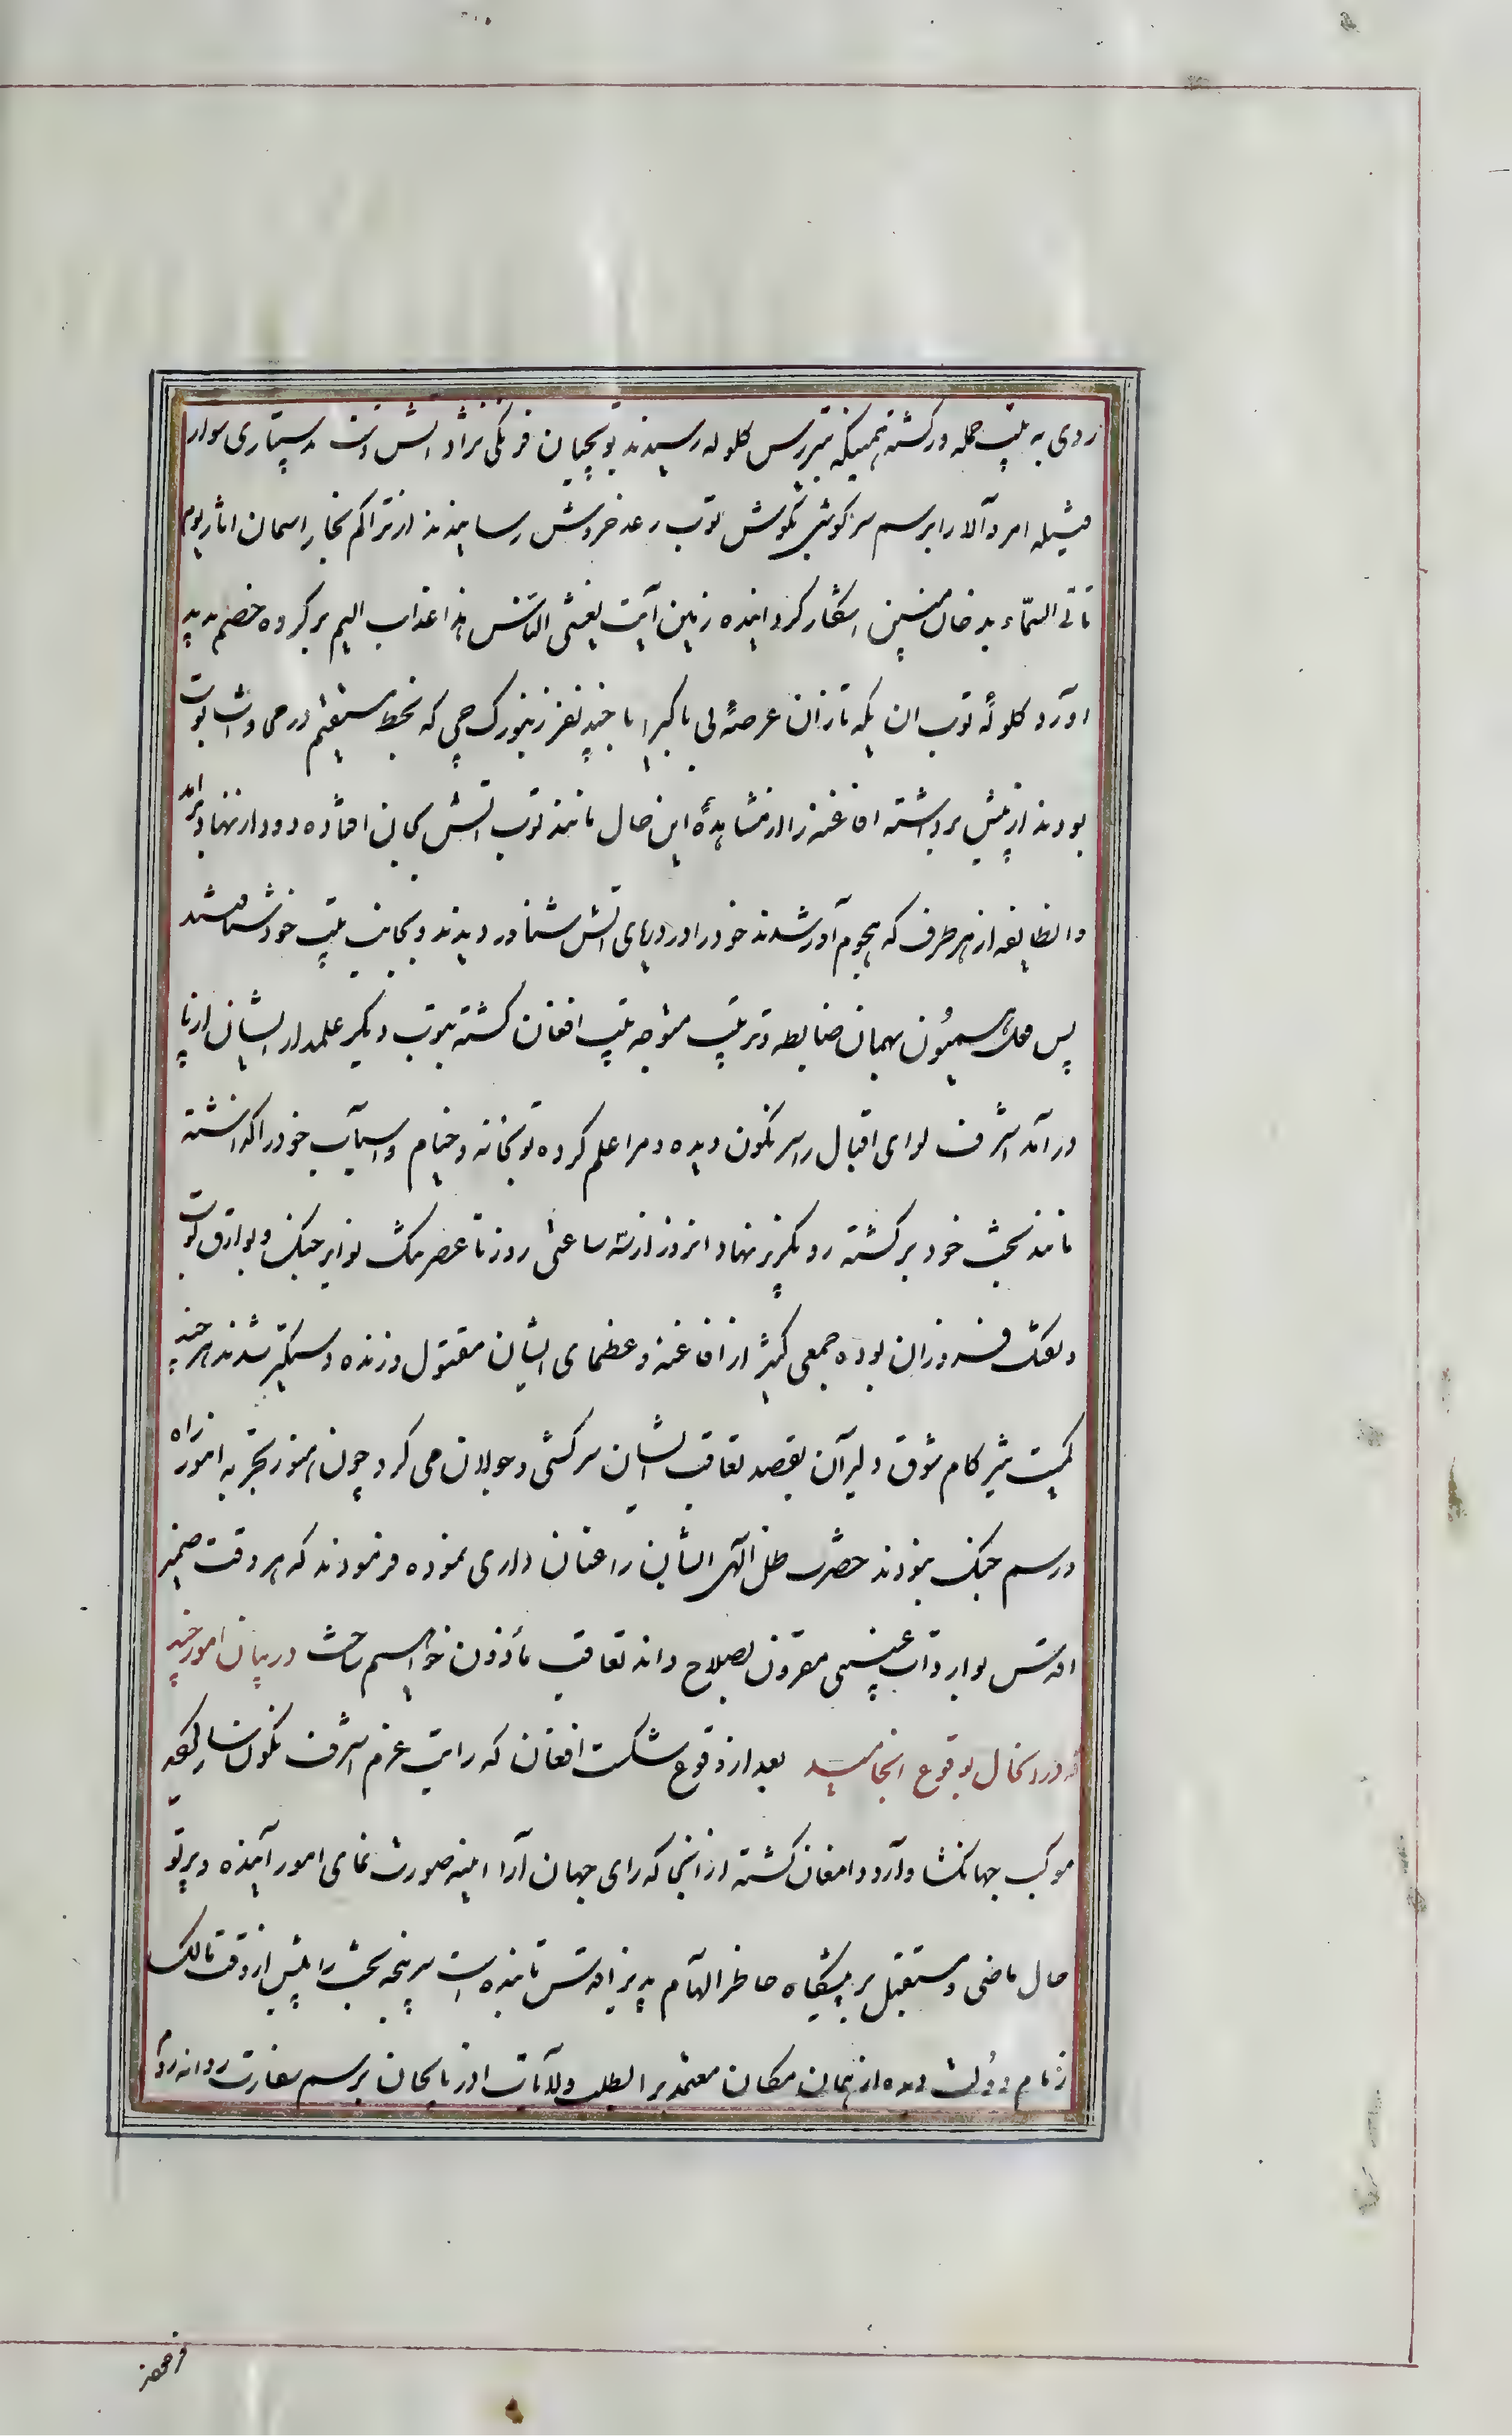 روی به تیپ حمله ور گشته همینکه بتیررس گلوله رسیدند توپچیان فرنگی نژاد آتش دست بدستیاری سوار
فتیله امر والا را برسم سرگوشی بگوش توپ رعد خروش رسانیدند از تراکم بخار اسمان اثار یوم
تاتی السماء بدخان مبین اشکار گردانیده زمین آیت یغشی الناس هذا عذاب الیم بر گروه خصم پدید
اورد گلولهٔ توپ ان یکه تازان عرصهٔ بی باکی را با چند نفر زنبورک چی که بخط مستقیم در محاذات توپ
بودند از پیش برداشته افاغنه را از مشاهدهٔ این حال مانند توپ اتش بجان افتاده دود از نهاد برامد
وانطایفه از هر طرف که هجوم آور شدند خود را در دریای اتش شناور دیدند و بجانب تیپ خود شتافتند
پس میمون بهمان ضابطه و ترتیب متوجه تیپ افغان گشته بتوپ دیگر علمدار ایشان از پا
در آمد اشرف لوای اقبال را سرنگون دیده و مرا علم کرده توپخانه و خیام و اسباب خود را گذاشته
مانند بخت خود برگشته رو بگریز نهاد انروز از سه ساعتی روز تا عصر تنگ نوایر جنگ و بوارق توپ
و تفنگ فروزان بوده جمعی کثیر از افاغنه و عظمای ایشان مقتول و زنده دستگیر شدند هرچند
کمیت تیز کام شوق دلیران بقصد تعاقب ایشان سرکشی و جولان می کرد چون هنوز تجربه اموز راه
و رسم جنگ نبودند حضرت ظل الهی ایشان را عنان داری نموده فرمودند که هر وقت ضمیر
اقدس بواردات غیبی مقرون بصلاح داند تعاقب مأذون خواهیم ساخت در بیان امور چند
که در انحال بوقوع انجامید بعد از وقوع شکست افغان که رایت عزم اشرف نگون سار گردید
موکب جهانگشا وارد دامغان گشته از آنجا که رای جهان آرا اینه صورت نمای امور آینده و پرتو
حال ماضی و مستقبل بر پیشگاه خاطر الهام پذیر اقدس تابنده است سرپنجه بخت را پیش از وقت مالک
زمام دولت دیده از همان مکان معتمد برا بطلب ولایات اذربایجان برسم سفارت روانه روم